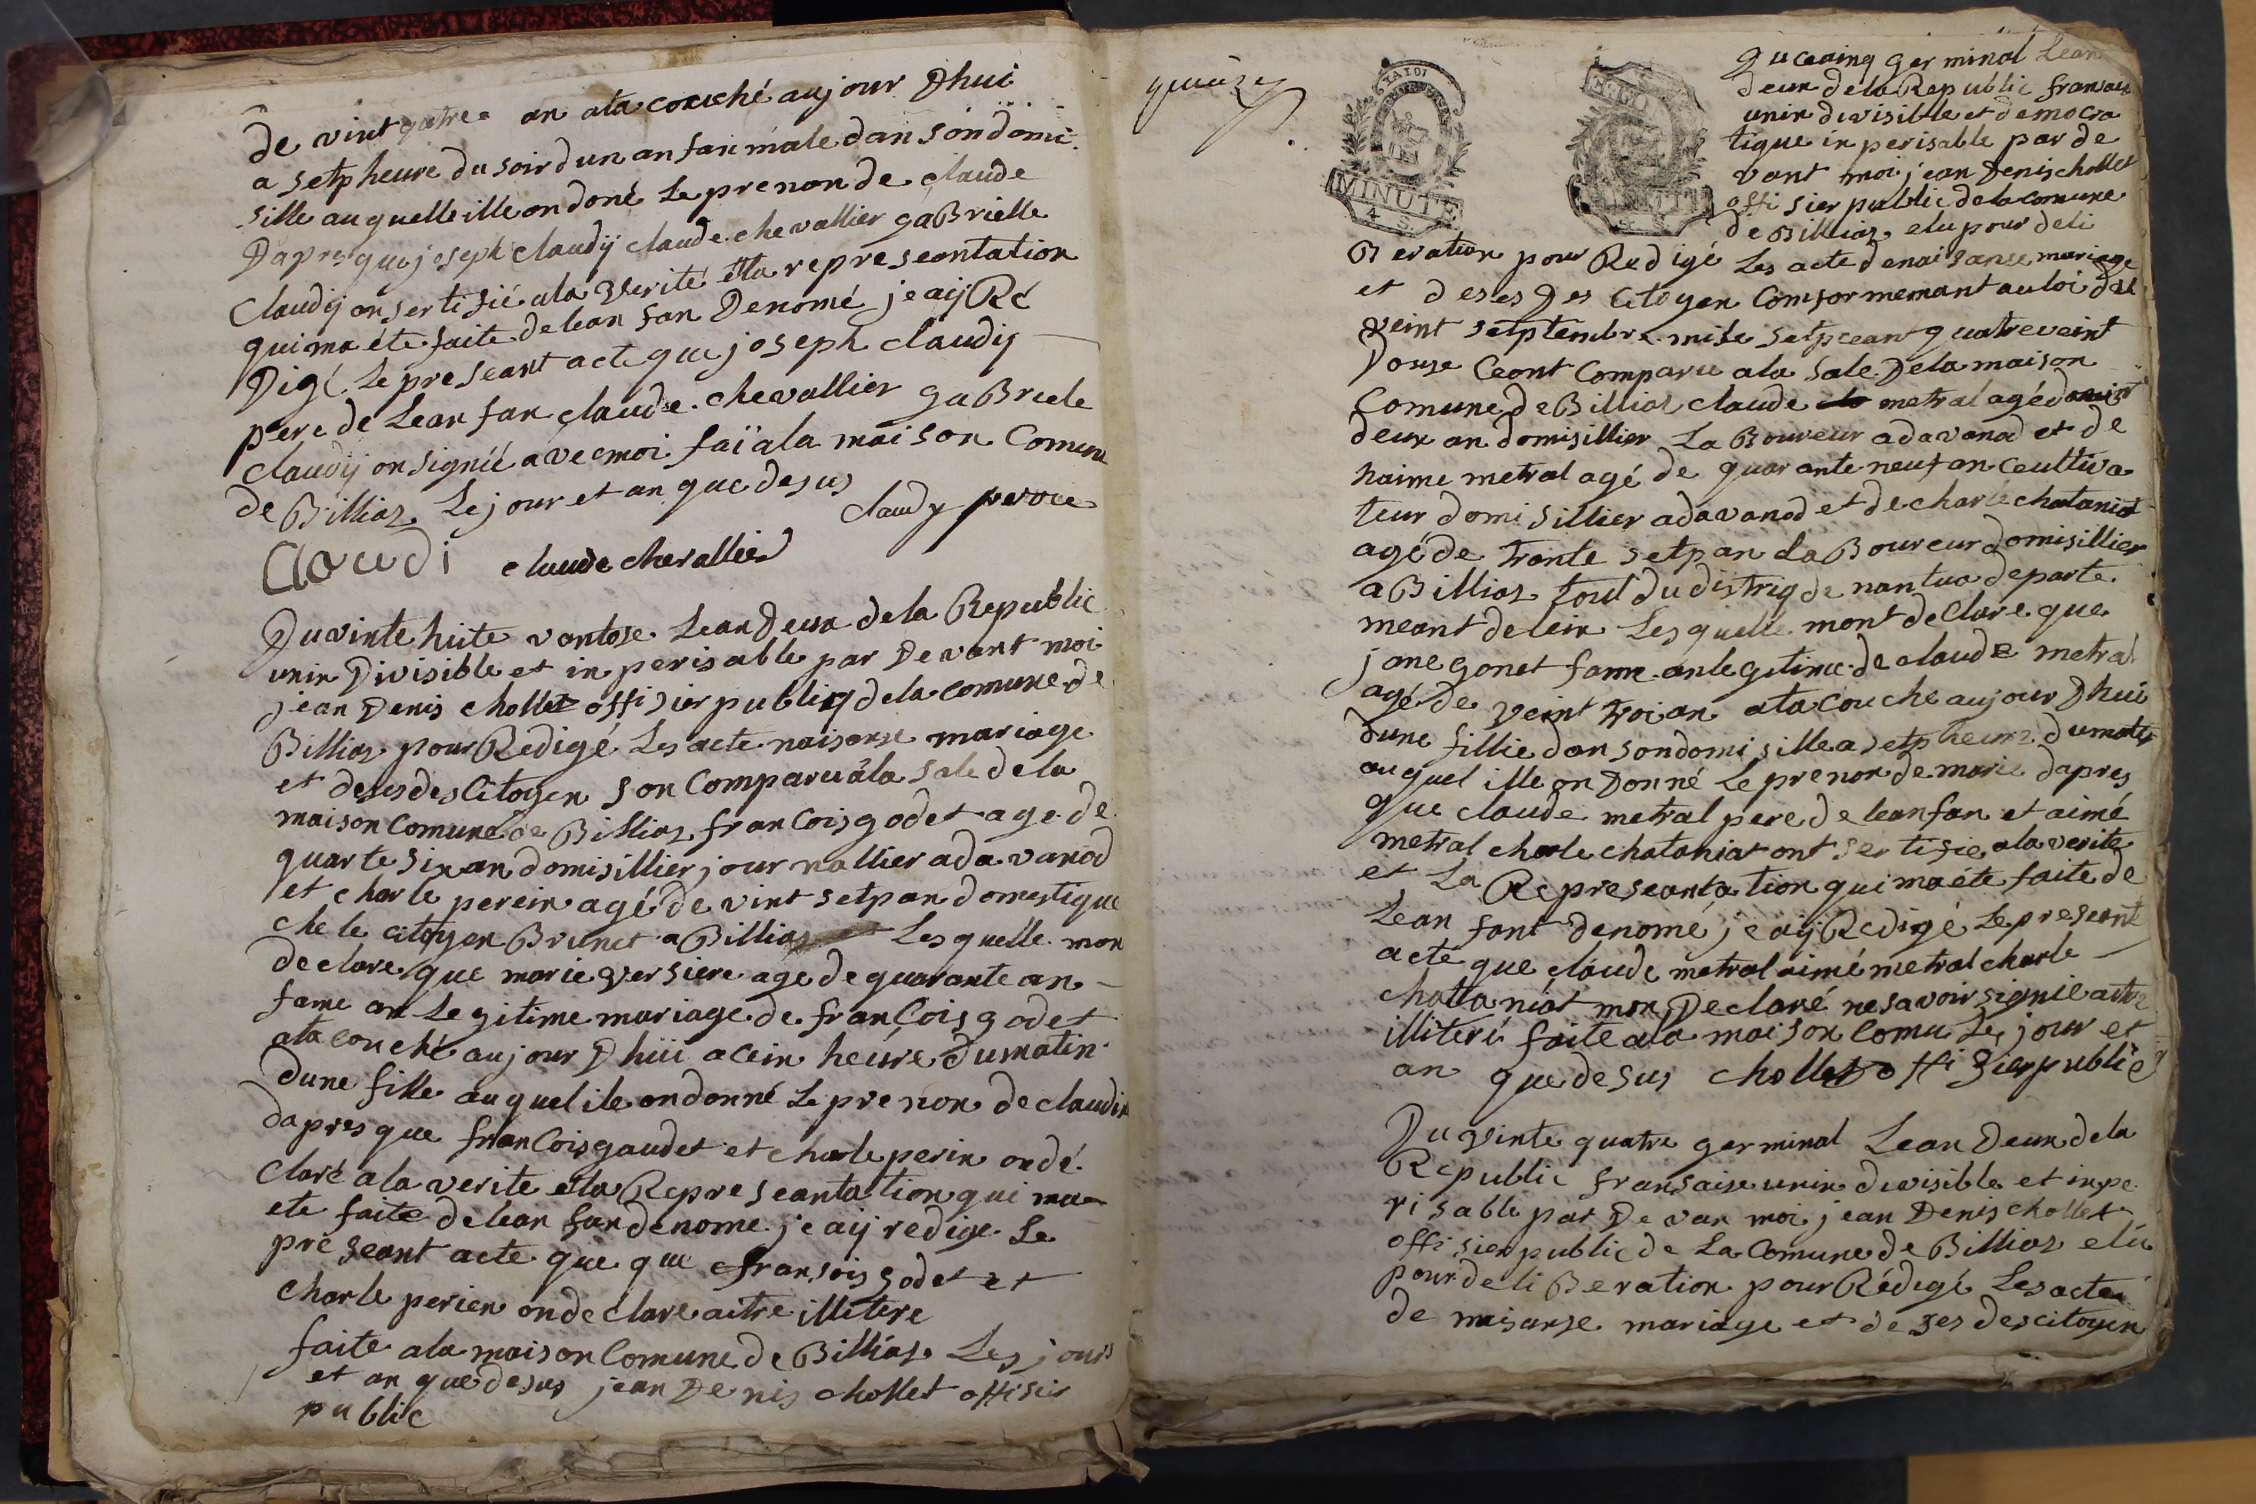 de vint quatre an ata couché aujour Dhui
a setp heure du soir dun an fan mâle dan son domi
sille auquelle ille on doné Le prenon de claude
Dapres que joseph claudy claude chevallier gaBrielle
claudy on sertifié ala verité et la represeantation
qui ma éte faite de lean fan Denomé je aij Ré
Digé Le preseant acte que joseph claudij
pere de Lean fan claude chevallier gaBriele
claudij on signié avec moi fai ala maison Comune
de Billiaz Le jour et an que desus
claudy perou
Claudi claude chevallier
Du vinte huite vantose Lean Deux dela Republic
unin Divisible et in perisable par Devant moi
jean Denis chollet offisier publiq de la comune de
Billiaz pour Redigé Les acte naisanse mariage
et deses des Citoyen son Comparu ala sale dela
maison Comune de Billiaz franCois godet age de
quarte six an domisillier journallier ada vanod
et charle perein agé de vint setp an domestique
che le citoyen Brunet a Billiaz Les quelle mon
declare que marie versiere age de quarante an
fame an Legitime mariage de franCois godet
ata couché aujour Dhui a cein heure du matin
dune fille auquel ile on donné Le prenon de claudin
dapres que franCois gaudet et charle perin on dé
claré ala verite et la Represeantation qui ma
ete faite de lean fan denome je aij redige Le
preseant acte que que fransois godet et
charle perien on declare aitre illitere
faite ala maison Comune de Billiaz Les jours
et an que desus jean Denis chollet offisier
public
Du ceinq germinal Lean
deux de la Republic fransaise
unin divisible et democra
tique in perisable par de
vant moi jean Denis chollet
offisier public de la comune
de Billiaz elu pour deli
Beration pour Redigé Les acte de naisanse mariage
et deses Des Citoyen Comformemant au loi du
veint setptembre mile setpceant quatreveint
Douse Ceont Comparu ala sale Dela maison
Comune de Billiaz claude metral agé de
deux an domisillier LaBoureur a davanod et de
haime metral agé de quarante neuf an Ceultiva
teur domisillier a davanod et de charle chataniat
agé de trante setp an LaBoureur domisillier
a Billiaz tout du distriq de nantua departe
meant de lein Les quelle mont deClare que
jane gonet fame an legitime de claude metral
agé de veint troi an ata couche aujour Dhui
dune fillie dan son domisille a setp heure du matin
auquel ille on Donné Le prenon de marie dapres
que claude metral pere de lean fan et aimé
metral charle chataniat ont sertifie ala verite
et La Represeantation qui ma éte faite de
Lean fant denomé je aij Redigé Le preseant
acte que claude metral aimé metral charle
chattaniat mon Declaré ne savoir signié aitre
illiteré faite ala maison Comu Le jour et
an que desus chollet offisier public
Du vinte quatre germinal Lean Deux dela
Republic fransaise unin divisible et inpe
risable par De van moi jean Denis chollet
offisier public de La Comune de Billiaz elu
pour deliBeration pour Rédigé Les acte
de naisanse mariage et de ses des citoyen
MINUTE
4 S